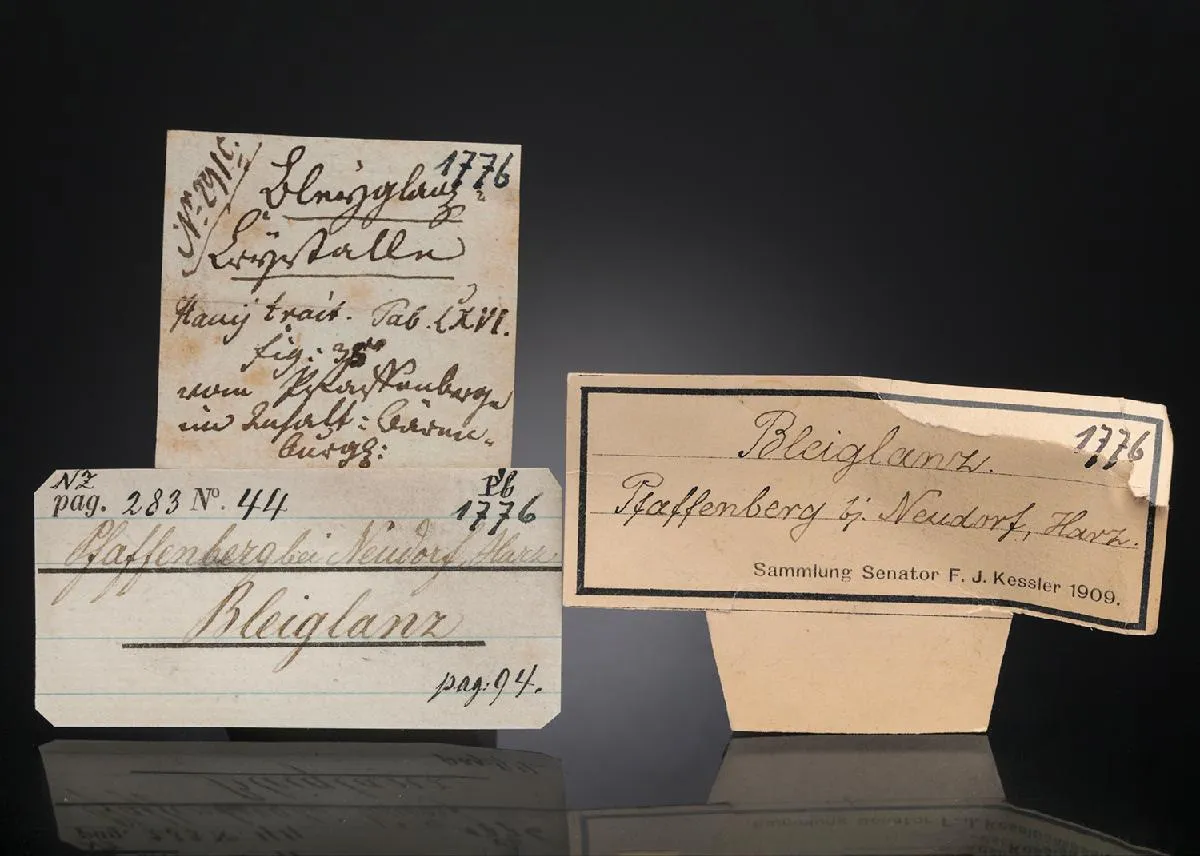 Nr: 291c.
1776
Bleyglanz=
Crystalle
Hauy trait. Tab. LXVI.
fig: 35
vom Pfaffenberge
im Anhalt: Bären-
burg:
NZ
pag. 283 No. 44
Pb
1776
Pfaffenberg bei Neudorf, Harz
Bleiglanz
pag: 94.
Bleiglanz.
1776
Pfaffenberg bj. Neudorf, Harz.
Sammlung Senator F. J. Kessler 1909.